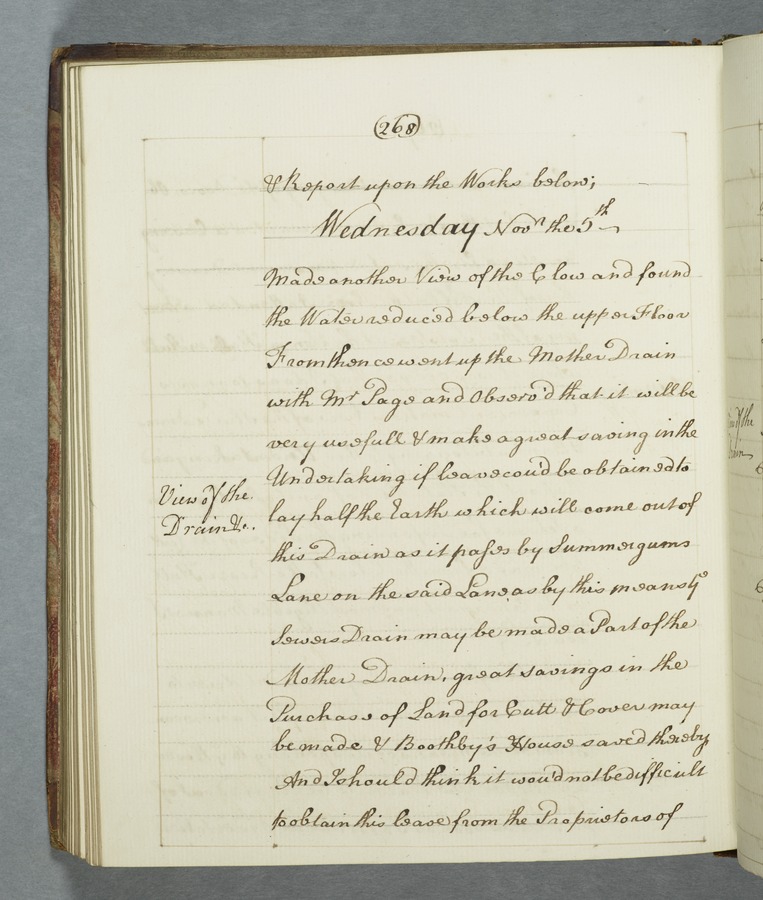 (268)
& Report upon the Works below;
Wednesday Novr the 5th
Made another View of the Clow and found
the Water reduc'd below the upper Floor
From thence went up the Mother Drain
with Mr Page and Observ'd that it will be
very usefull & make a great saving in the
Undertaking if leave cou'd be obtained to
View of the
Drain &c.
lay half the Earth which will come out of
this Drain as it passes by Summergums
Lane on the said Lane, as by this means ye
Sewers Drain may be made a Part of the
Mother Drain, great savings in the
Purchase of Land for Cutt & Cover may
be made & Boothby's House saved thereby
And I should think it wou'd not be difficult
to obtain this leave from the Proprietors of
of the
Drain